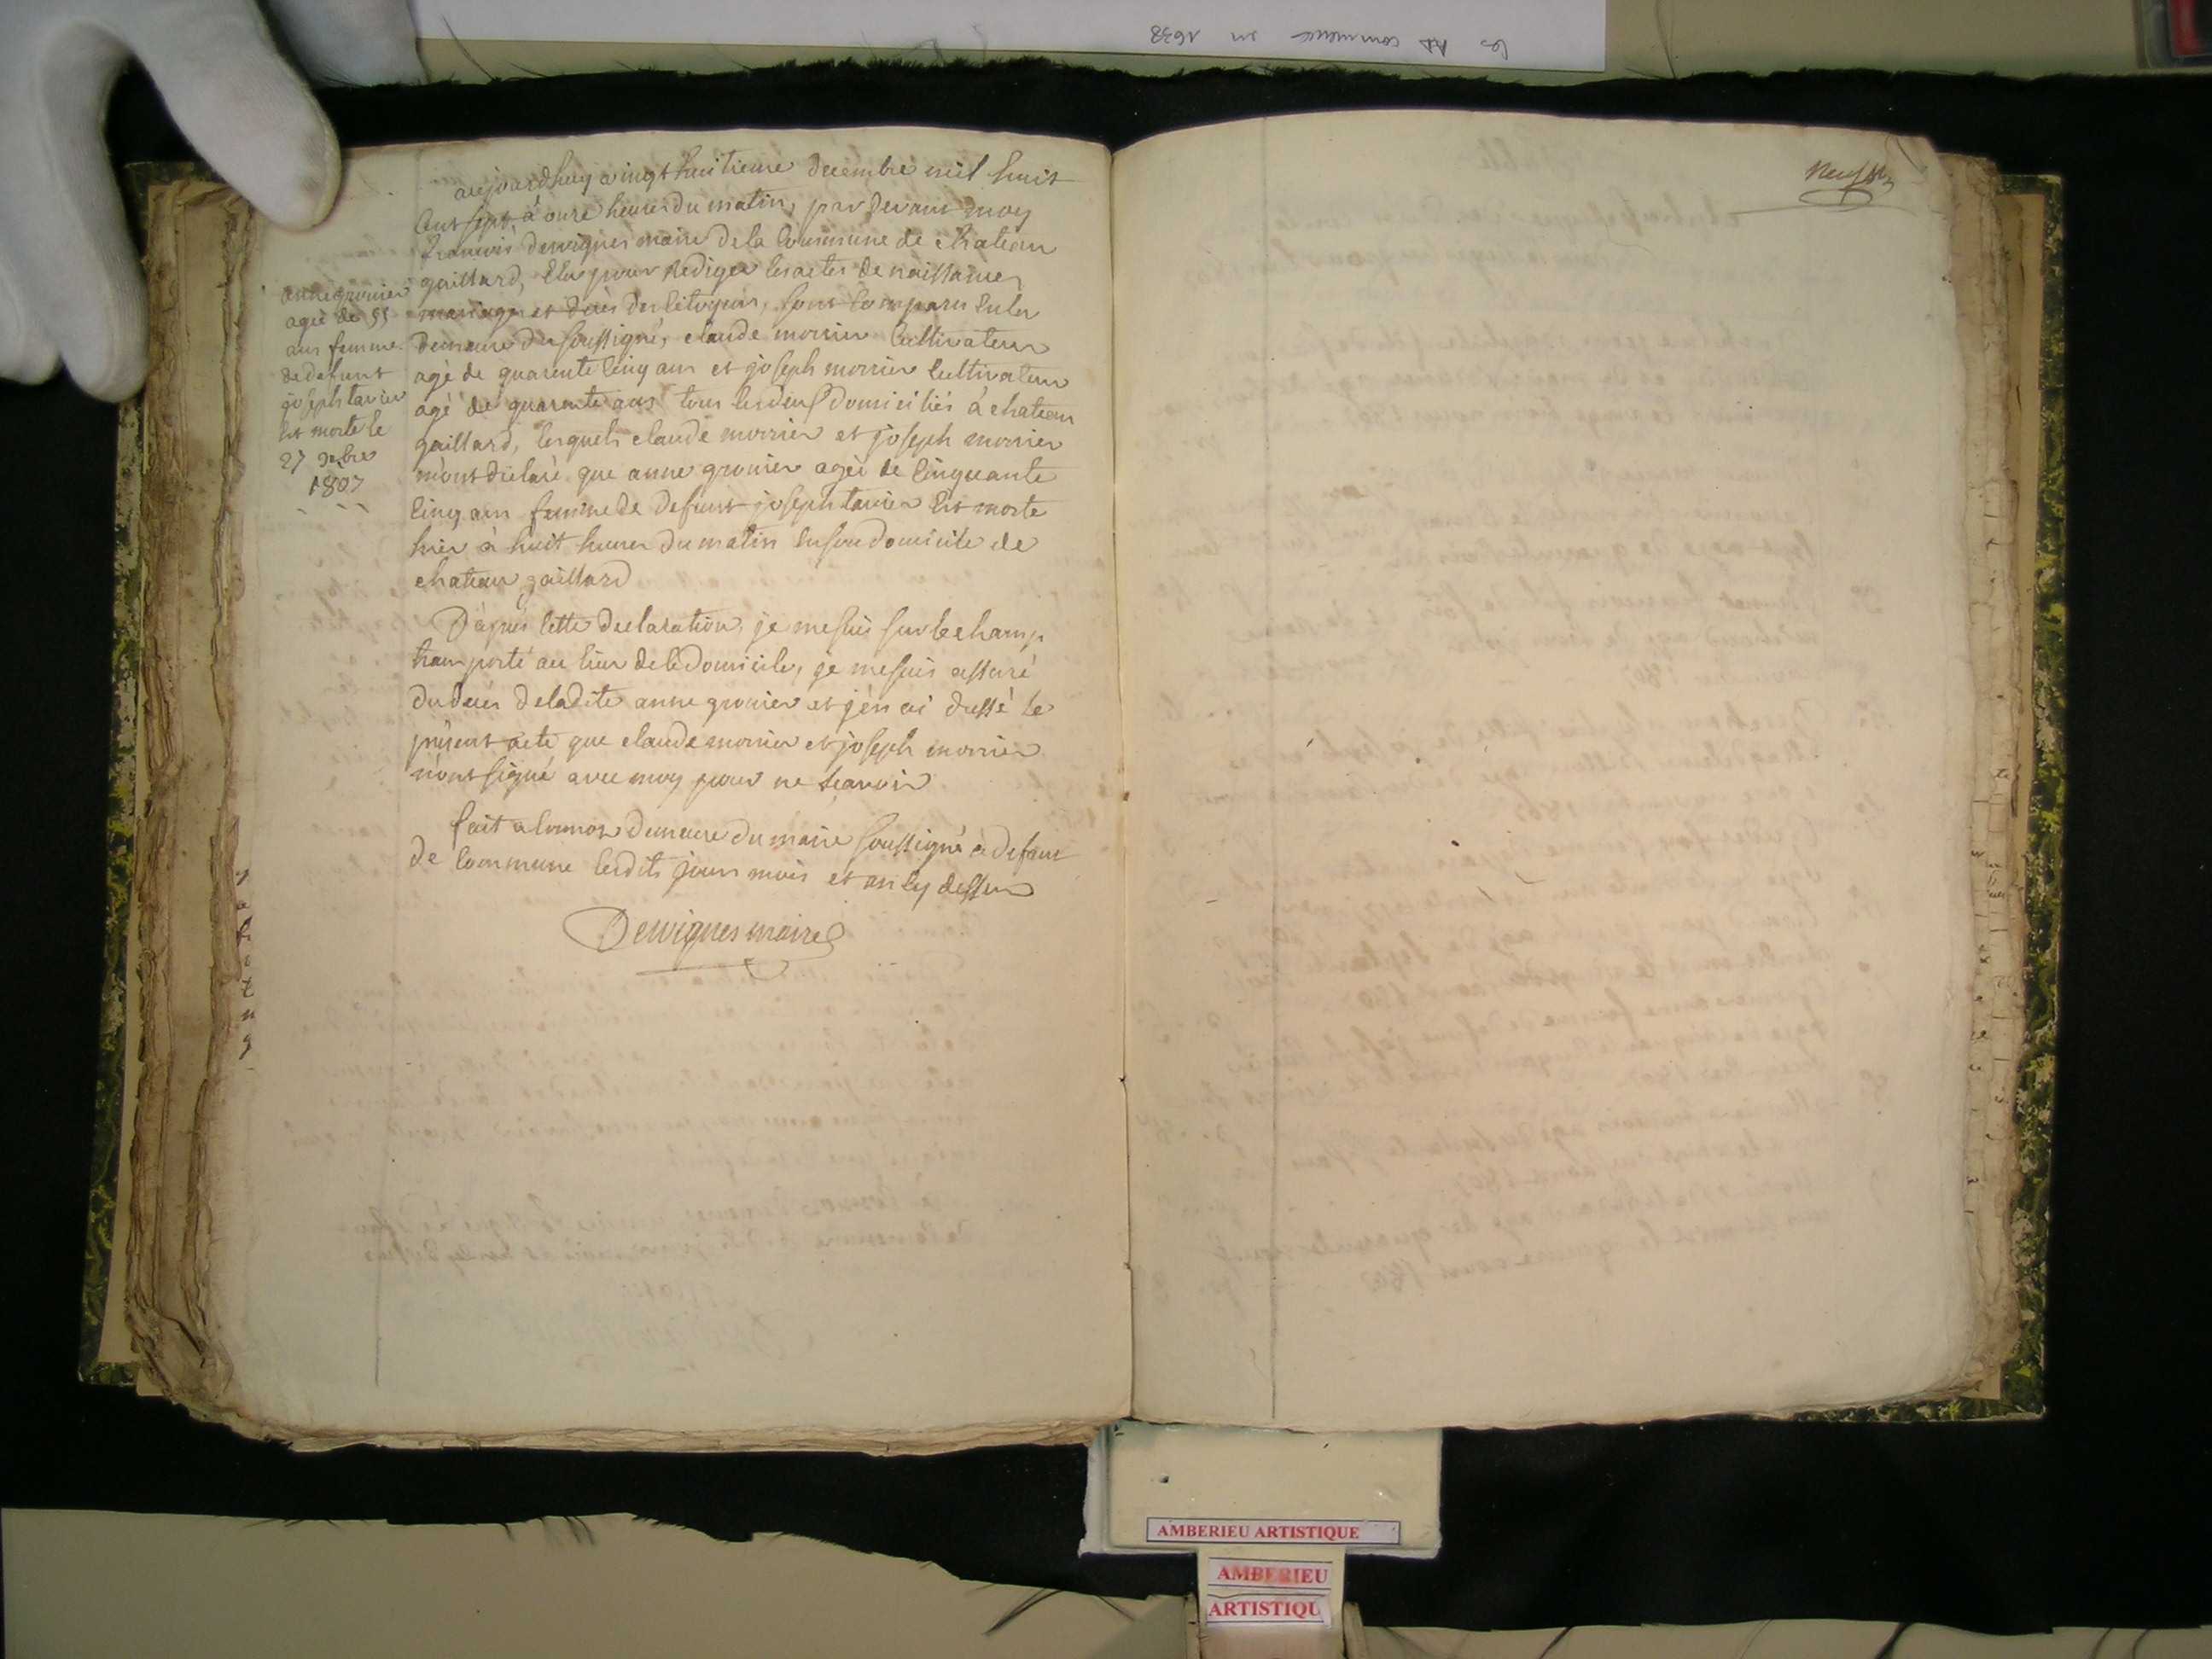 les AD commence en 1638
aujourdhuy vingt huitieme decembre mil huit
cent sept à onze heures du matin, par devant moy
françois dervignes maire de la commune de chateau
gaillard, elu pour rediger les actes de naissances
mariages et deces des citoyens, sont comparu en la
demeure du soussigné, claude morrier cultivateur
agé de quarente cinq ans et joseph morrier cultivateur
agé de quarente ans tous les deux domiciliés à chateau
gaillard, lesquels claude morrier et joseph morrier
m'ont déclaré que anne gronier agée de cinquante
cinq ans femme de defunt joseph tavier est morte
hier à huit heures du matin en son domicile de
chateau gaillard
D'après cette declaration, je me suis sur le champ
transporté au lieu de ce domicile, je me suis assuré
du deces de ladite anne gronier et j'en ai dressé le
présent acte que claude morrier et joseph morrier
n'ont signé avec moy pour ne scavoir
fait a cormoz demeure du maire soussigné à defaut
de commune lesdits jour mois et an cy dessus
Dervignes maire
anne gronier
agée de 55
ans femme
de defunt
joseph tavier
est morte le
27 xbre
1807
AMBERIEU ARTISTIQUE
AMBERIEU
ARTISTIQU